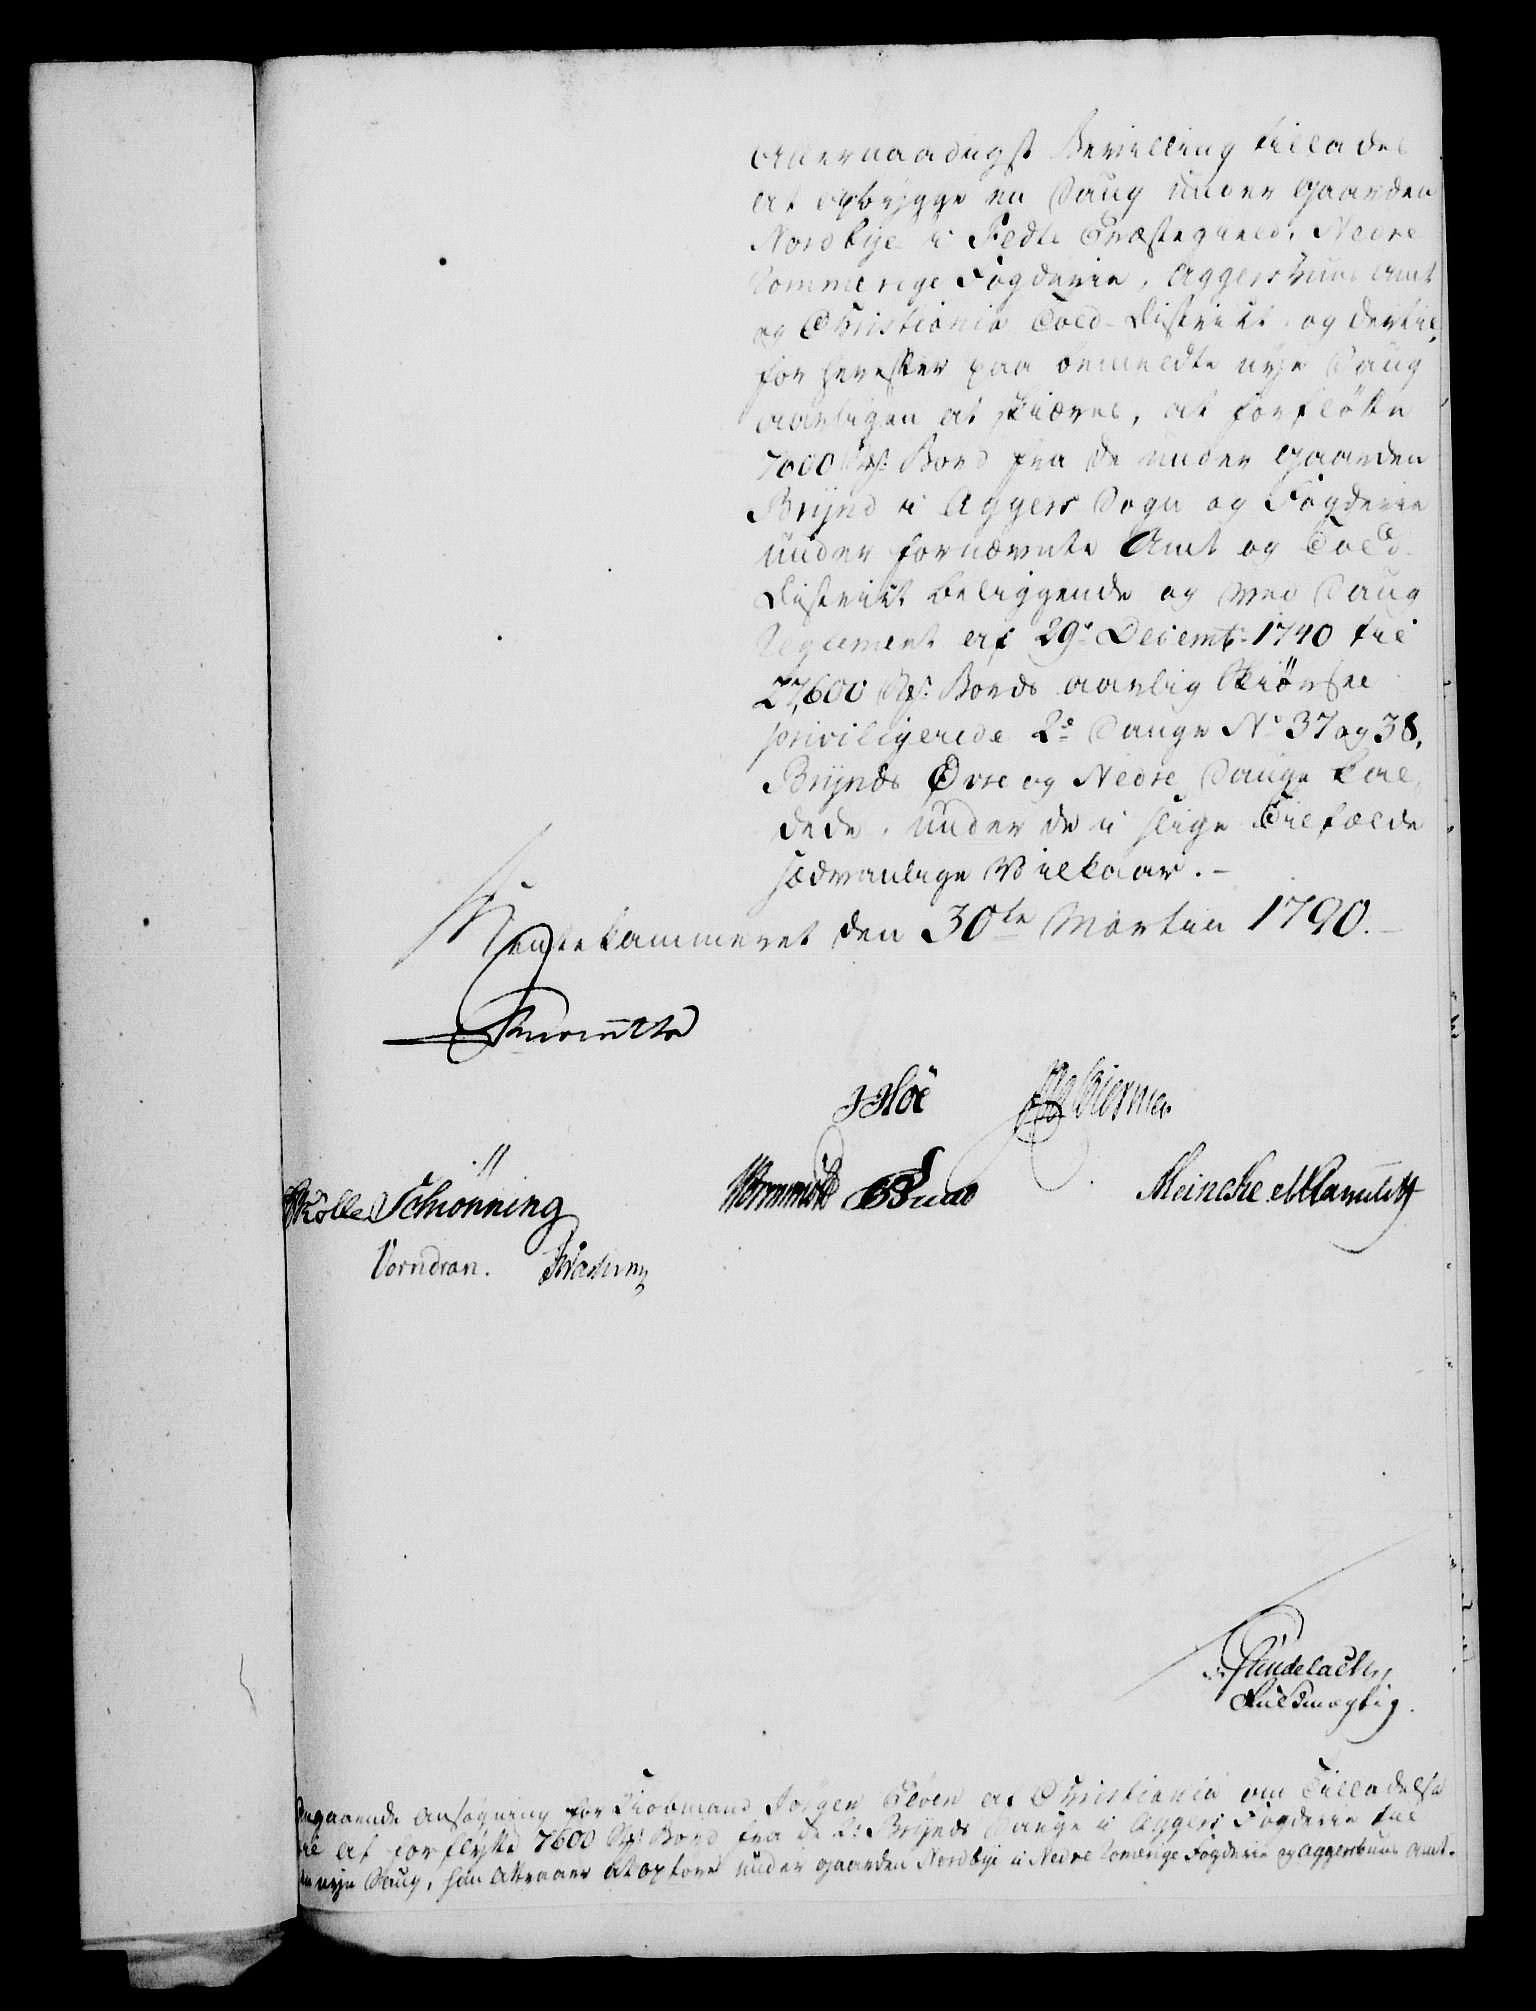 Allernaadigst Bevilling tillades
at opbygge en Saug under Gaarden
Nordbye i Fedts Præstegield, Nedre
Romerige Fogderie, Aggershuus Amt
og Christiania Told-District, og dertil,
for herefter paa bemeldte nye Saug
aarligen at skiæres, at forflötte
7600 Ds: Bord fra de under Gaarden
Brynd i Aggers Sogn og Fogderie
under fornævnte Amt og Told-
District beliggende og ved Saug
Reglement af 29de Decembr: 1740 til
27,600 Ds: Bords aarlig Skiørsel
priviligerede 2de Sauge No 37 og 38,
Brynds Øvre og Nedre Sauge kal-
dede, under de i slige Tilfælde
sædvanlige Vilkaar. -
Rentekammeret den 30te Martii 1790. -
JHöe
Schiönning
Meincke
Vorndran.
Fuldmægtig.
Angaaende Ansøgning for Kiøbmand Jörgen Flöen af Christiania om Tilladelse
til at forflytte 7600 Ds: Bord fra de 2de Brynds Sauge i Aggers Fogderie til
en nye Saug, han attraaer at opføre under Gaarden Nordbye i Nedre Romerige Fogderie og Aggershuus Amt.